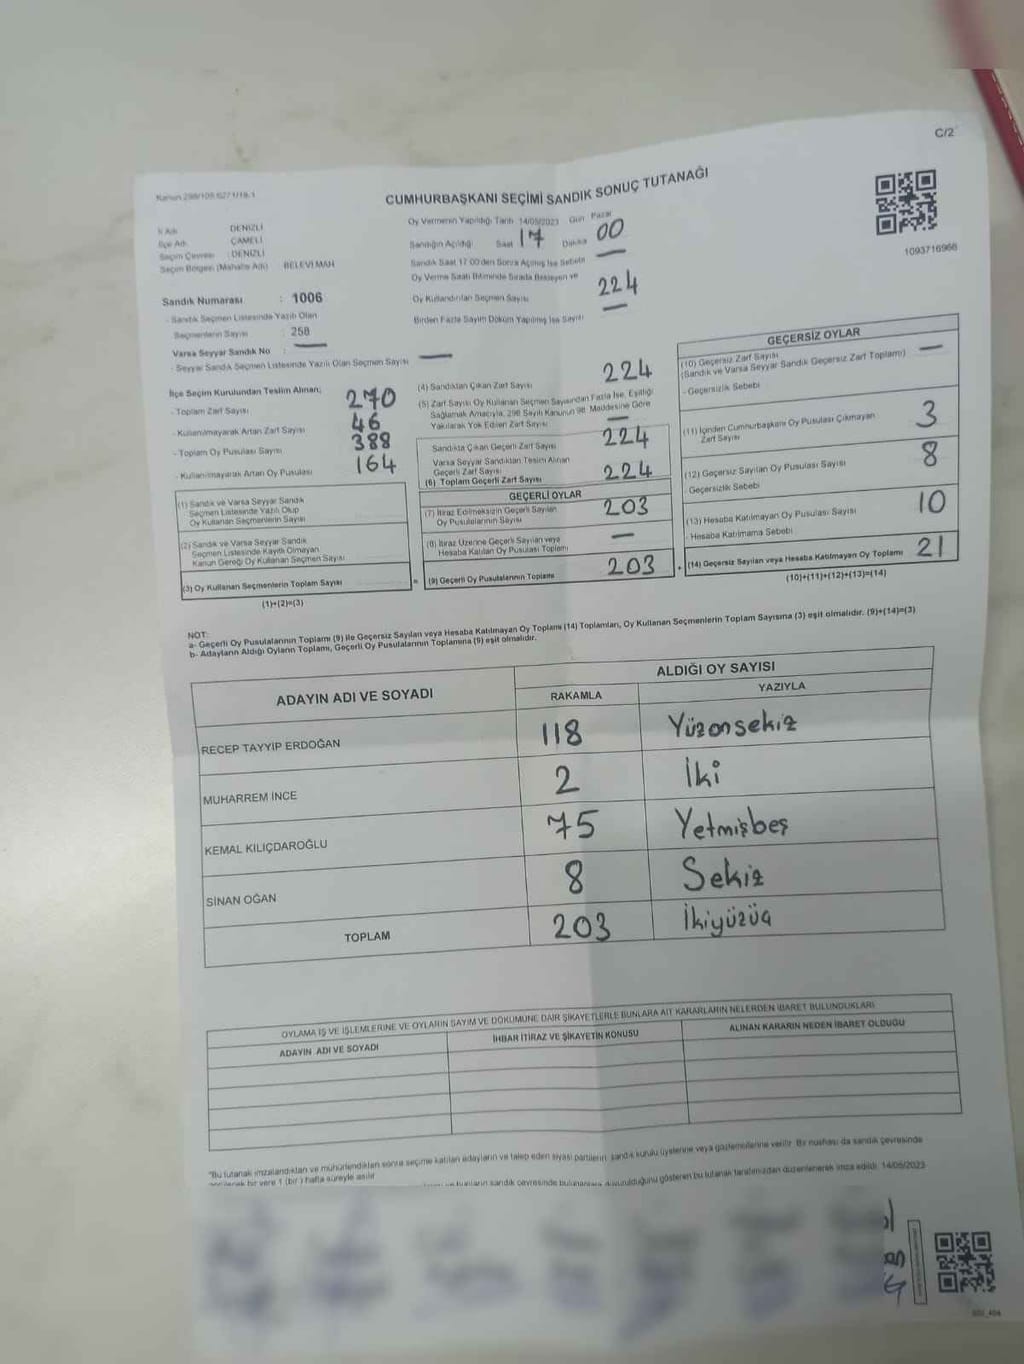 C/2
CUMHURBAŞKANI SEÇİMİ SANDIK SONUÇ TUTANAĞI
İl Adı DENİZLİ
İlçe Adı ÇAMELİ
Seçim Çevresi : DENİZLİ
Seçim Bölgesi (Mahalle Adı) BELEVİ MAH
Sandık Numarası : 1006
- Sandık Seçmen Listesinde Yazılı Olan
Seçmenlerin Sayısı : 258
Varsa Seyyar Sandık No : —
- Seyyar Sandık Seçmen Listesinde Yazılı Olan Seçmen Sayısı —
Oy Vermenin Yapıldığı Tarih 14/05/2023 Gün Pazar
Sandığın Açıldığı Saat 17 Dakika 00
Sandık Saat 17:00'den Sonra Açılmış İse Sebebi —
Oy Verme Saati Bitiminde Sırada Bekleyen ve
Oy Kullandırılan Seçmen Sayısı 224
Birden Fazla Sayım Döküm Yapılmış İse Sayısı —
1093716966
İlçe Seçim Kurulundan Teslim Alınan;
- Toplam Zarf Sayısı 270
- Kullanılmayarak Artan Zarf Sayısı 46
- Toplam Oy Pusulası Sayısı 388
- Kullanılmayarak Artan Oy Pusulası 164
(1) Sandık ve Varsa Seyyar Sandık
Seçmen Listesinde Yazılı Olup
Oy Kullanan Seçmenlerin Sayısı
(2) Sandık ve Varsa Seyyar Sandık
Seçmen Listesinde Kayıtlı Olmayan
Kanun Gereği Oy Kullanan Seçmen Sayısı
(3) Oy Kullanan Seçmenlerin Toplam Sayısı
(1)+(2)=(3)
(4) Sandıktan Çıkan Zarf Sayısı 224
(5) Zarf Sayısı Oy Kullanan Seçmen Sayısından Fazla İse, Eşitliği
Sağlamak Amacıyla, 298 Sayılı Kanunun 98. Maddesine Göre
Yakılarak Yok Edilen Zarf Sayısı —
Sandıkta Çıkan Geçerli Zarf Sayısı 224
Varsa Seyyar Sandıktan Teslim Alınan
Geçerli Zarf Sayısı
(6) Toplam Geçerli Zarf Sayısı 224
GEÇERLİ OYLAR
(7) İtiraz Edilmeksizin Geçerli Sayılan
Oy Pusulalarının Sayısı 203
(8) İtiraz Üzerine Geçerli Sayılan veya
Hesaba Katılan Oy Pusulası Toplamı —
= (9) Geçerli Oy Pusulalarının Toplamı 203
GEÇERSİZ OYLAR
(10) Geçersiz Zarf Sayısı —
(Sandık ve Varsa Seyyar Sandık Geçersiz Zarf Toplamı)
- Geçersizlik Sebebi
(11) İçinden Cumhurbaşkanı Oy Pusulası Çıkmayan
Zarf Sayısı 3
(12) Geçersiz Sayılan Oy Pusulası Sayısı 8
- Geçersizlik Sebebi
(13) Hesaba Katılmayan Oy Pusulası Sayısı 10
- Hesaba Katılmama Sebebi
+ (14) Geçersiz Sayılan veya Hesaba Katılmayan Oy Toplamı 21
(10)+(11)+(12)+(13)=(14)
NOT:
a- Geçerli Oy Pusulalarının Toplamı (9) ile Geçersiz Sayılan veya Hesaba Katılmayan Oy Toplamı (14) Toplamları, Oy Kullanan Seçmenlerin Toplam Sayısına (3) eşit olmalıdır. (9)+(14)=(3)
b- Adayların Aldığı Oyların Toplamı, Geçerli Oy Pusulalarının Toplamına (9) eşit olmalıdır.
ADAYIN ADI VE SOYADI
ALDIĞI OY SAYISI
RAKAMLA YAZIYLA
RECEP TAYYİP ERDOĞAN 118 Yüzonsekiz
MUHARREM İNCE 2 İki
KEMAL KILIÇDAROĞLU 75 Yetmişbeş
SİNAN OĞAN 8 Sekiz
TOPLAM 203 İkiyüzüç
OYLAMA İŞ VE İŞLEMLERİNE VE OYLARIN SAYIM VE DÖKÜMÜNE DAİR ŞİKAYETLERLE BUNLARA AİT KARARLARIN NELERDEN İBARET BULUNDUKLARI
ADAYIN ADI VE SOYADI
İHBAR İTİRAZ VE ŞİKAYETİN KONUSU
ALINAN KARARIN NEDEN İBARET OLDUĞU
"Bu tutanak imzalandıktan ve mühürlendikten sonra seçime katılan adayların ve talep eden siyasi partilerin sandık kurulu üyelerine veya gözlemcilerine verilir. Bir nüshası da sandık çevresinde
bir yere 1 (bir) hafta süreyle asılır.
bunların sandık çevresinde duyurulduğunu gösteren bu tutanak tarafımızdan düzenlenerek imza edildi. 14/05/2023